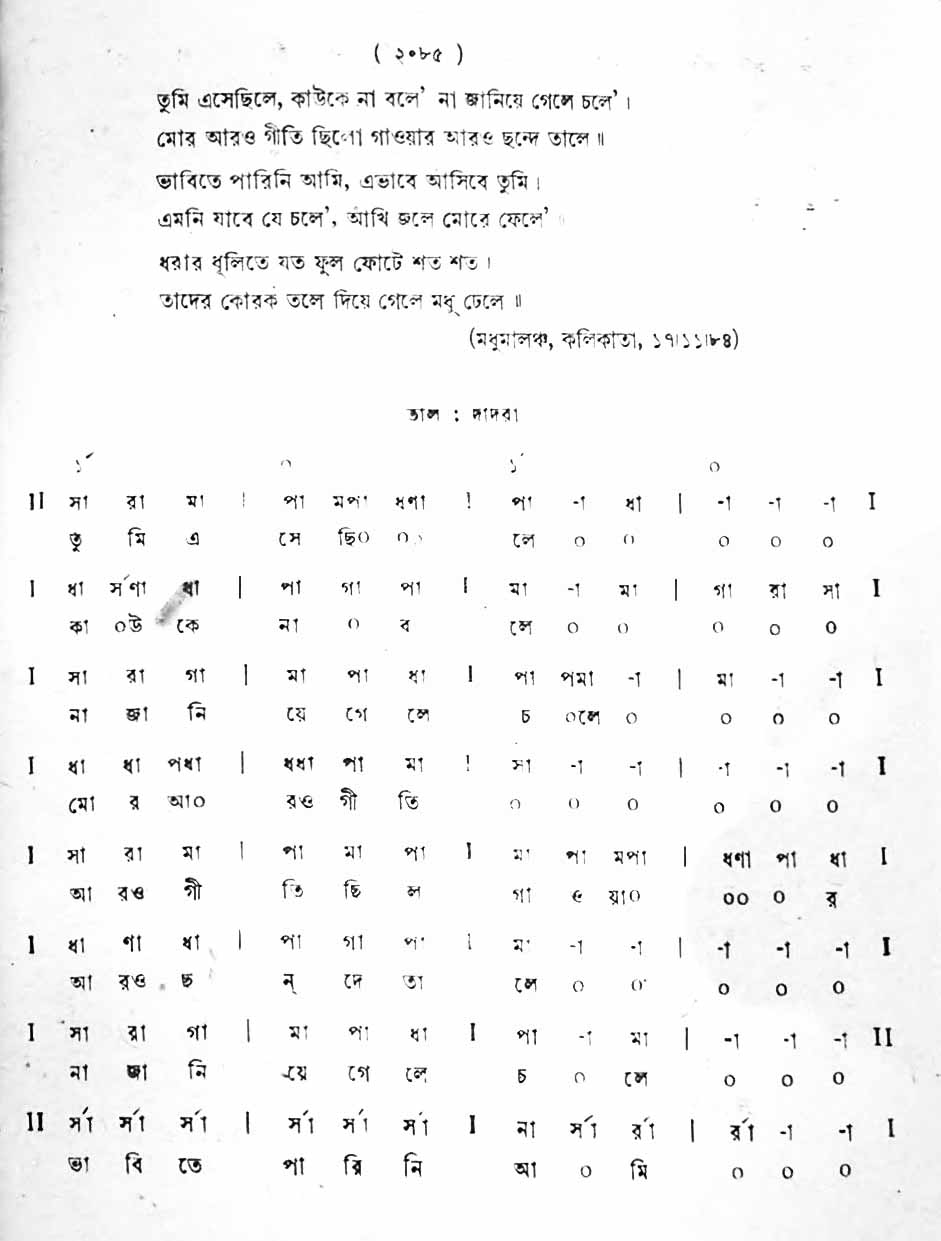 ( ২০৮৫ )
তুমি এসেছিলে, কাউকে না বলে' না জানিয়ে গেলে চলে' ।
মোর আরও গীতি ছিলো গাওয়ার আরও ছন্দে তালে ॥
ভাবিতে পারিনি আমি, এভাবে আসিবে তুমি ।
এমনি যাবে যে চলে', আঁখি জলে মোরে ফেলে' ॥
ধরার ধূলিতে যত ফুল ফোটে শত শত ।
তাদের কোরক তলে দিয়ে গেলে মধু ঢেলে ॥
(মধুমালঞ্চ, কলিকাতা, ১৭।১১।৮৪)
তাল : দাদরা
১´ ০ ১´ ০
II সা রা মা | পা মপা ধণা I পা -া ধা | -া -া -া I
তু মি এ সে ছি০ ০০ লে ০ ০ ০ ০ ০
I ধা র্সণা ধা | পা গা পা I মা -া মা | গা রা সা I
কা ০উ কে না ০ ব লে ০ ০ ০ ০ ০
I সা রা গা | মা পা ধা I পা পমা -া | মা -া -া I
না জা নি য়ে গে লে চ ০লে ০ ০ ০ ০
I ধা ধা পধা | ধধা পা মা I সা -া -া | -া -া -া I
মো র আ০ রও গী তি ০ ০ ০ ০ ০ ০
I সা রা মা | পা মা পা I মা পা মপা | ধণা পা ধা I
আ রও গী তি ছি ল গা ও য়া০ ০০ ০ র
I ধা ণা ধা | পা গা পা I মা -া -া | -া -া -া I
আ রও ছ ন্ দে তা লে ০ ০ ০ ০ ০
I সা রা গা | মা পা ধা I পা -া মা | -া -া -া II
না জা নি য়ে গে লে চ ০ লে ০ ০ ০
II র্সা র্সা র্সা | র্সা র্সা র্সা I না র্সা র্রা | র্রা -া -া I
ভা বি তে পা রি নি আ ০ মি ০ ০ ০